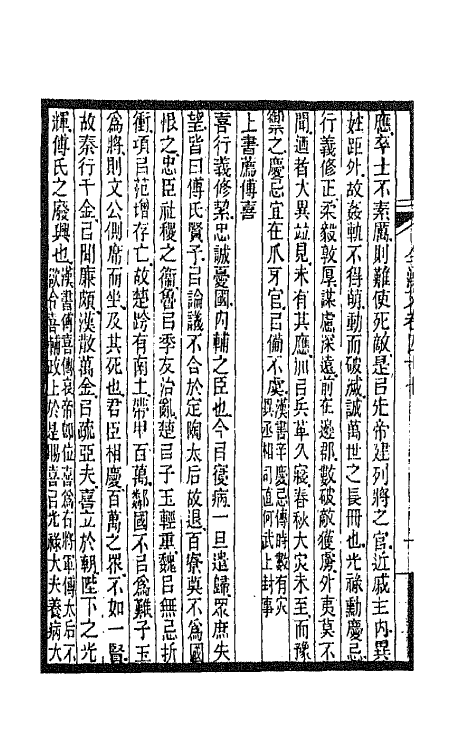 全漢文卷四十
應卒士不素厲則難使死敵是㠯先帝建列將之官近戚主內異
姓距外故姦軌不得萌動而破滅誠萬世之長冊也光祿勳慶忌
行義修正柔毅敦厚謀慮深遠前在邊郡數破敵獲虜外夷莫不
聞迺者大異竝見未有其應加㠯兵革久寢春秋大灾未至而豫
禦之慶忌宜在爪牙官㠯備不虞漢書辛慶忌傳時數有灾
異丞相司直何武上封事
上書薦傅喜
喜行義修絜忠誠憂國內輔之臣也今㠯寑病一旦遣歸眾庶失
望皆曰傅氏賢子㠯論議不合於定陶太后故退百寮莫不為國
恨之忠臣社稷之衞魯㠯季友治亂楚㠯子玉輕重魏㠯無忌折
衝項㠯范增存亡故楚跨有南土帶甲百萬鄰國不㠯為難子玉
為將則文公側席而坐及其死也君臣相慶百萬之眾不如一賢
故秦行千金㠯閒廉頗漢散萬金㠯疏亞夫喜立於朝陛下之光
輝傅氏之廢興也漢書傅喜傳哀帝即位喜為右將軍傅太后不
欲令喜輔政上於是賜喜㠯光祿大夫養病大